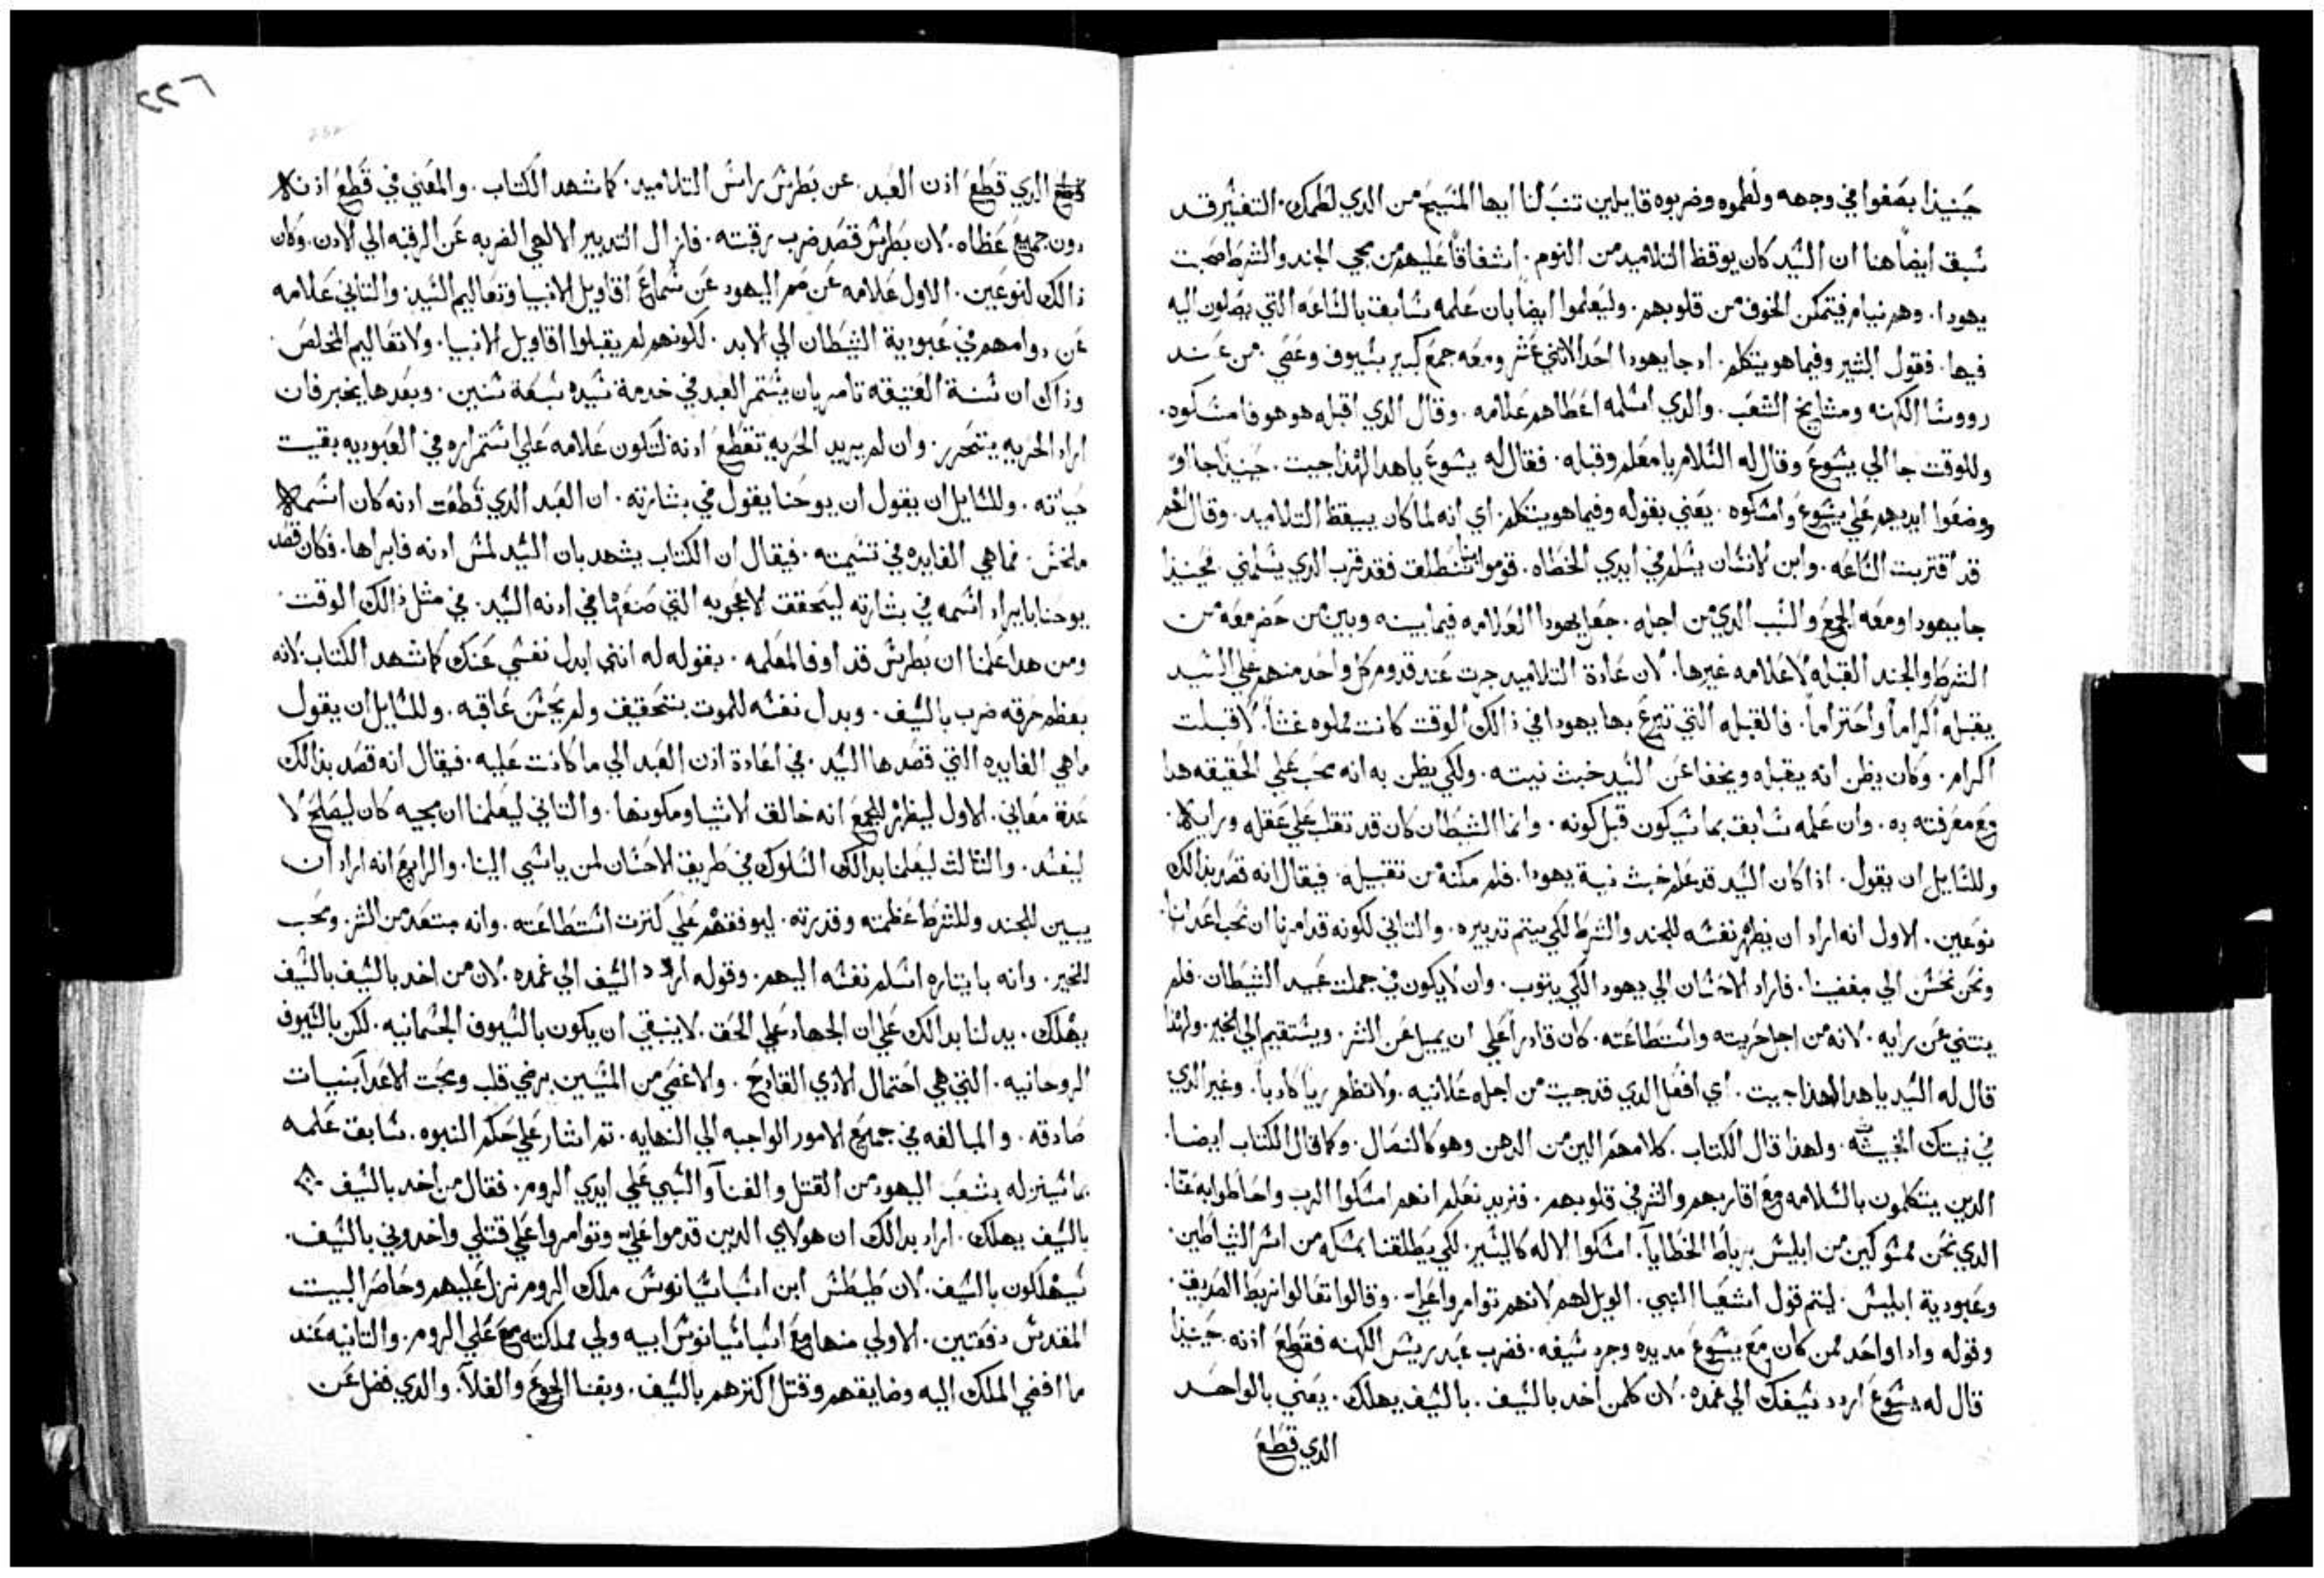 حينيذا بصقوا في وجهه ولطموه وضربوه قايلين تنبَ لنا ايها المسيح من الدي لطمك. التفسير قد
سبق ايضاً هنا ان السيد كان يوقظ التلاميد من النوم. اشفاقاً عليهم من مجي الجند والشرط صحبت
يهودا. وهم نيام فيتمكن الخوف من قلوبهم. وليعلموا ايضاً بان علمه سابق بالساعه التي يصلون اليه
فيها. فقول البشير وفيما هو يتكلم. اد جا يهودا احد الاتني عشر ومعه جمع كبير بسيوف وعصي. من عند
رووسا الكهنه ومشايخ الشعب. والدي اسلمه اعطاهم علامه. وقال الدي اقبله هو هو فامسكوه.
وللوقت جا الي يسوع وقال له السلام يا معلم وقبله. فقال له يسوع يا هدا الهدا جيت. حينيذا جااوّ
ووضعوا ايديهم علي يسوع وامسكوه. يعني بقوله وفيما هو يتكلم. اي انه لما كان ييقظ التلاميد. وقال لهم
قد اقتربت الساعه. وابن الانسان يسلم في ايدي الخطاه. قوموا بنا ننطلق فقد قرب الدي يسلمني. فحينيذا
جا يهودا ومعه الجمع والسبب الدي من اجله. جعل يهودا العلامه فيما بينه وبين من حضر معه من
الشرط والجند القبله لا علامه غيرها. لان عادة التلاميد جرت عند قدوم كل واحد منهم علي السيد
يقبله اكراماً واحتراماً. فالقبله التي تبرع بها يهودا في ذالك الوقت كانت مملوه غشاً. لا قبلت
اكرام. وكان يظن انه يقبله ويخفا عن السيد خبث نيته. ولكي يظن به انه يحب علي الحقيقه هدا
مع معرفته به. وان علمه سابق بما سيكون قبل كونه. وانما الشيطان كان قد تقلب علي عقله ورايه.
وللسايل ان يقول. اذا كان السيد قد علم خبث نية يهودا. فلم مكنه من تقبيله. فيقال انه قصد بذالك
نوعين. الاول انه اراد ان يظهر نفسه للجند والشرط لكي يتم تدبيره. والتاني لكونه قد امرنا ان نحب اعدانا.
ونحن نحسن الي مبغضينا. فاراد الاحسان الي يهودا لكي يتوب. وان لا يكون في جملت عبيد الشيطان. فلم
ينتني عن رايه. لانه من اجل حريته واستطاعته. كان قادراً علي ان يميل عن الشر. ويستقيم الي الخير. ولهدا
قال له السيد يا هدا الهدا جيت. اي افعل الدي قد جيت من اجله علانيه. ولا تظهر ريا كادباً. وغير الدي
في نيتك الخبيثه. ولهدا قال الكتاب. كلامهم الين من الدهن وهو كالنصال. وكما قال الكتاب ايضا.
الدين يتكلمون بالسلامه مع اقاربهم والشر في قلوبهم. فنريد نعلم انهم امسكوا الرب واحاطوا به عنا.
الدي نحن ممسوكين من ابليس برباط الخطايا. امسكوا الاله كاليسير. لكي يطلقنا بمسكه من اسر الشياطين.
وعبودية ابليس. ليتم قول اشعيا النبي. الويل لهم لانهم توامروا علي. وقالوا تعالوا نربط الصديق.
وقوله وادا واحد ممن كان مع يسوع مد يده وجرد سيفه. فضرب عبد ريس الكهنه فقطع اذنه. حينيذا
قال له يسوع اردد سيفك الي غمده. لان كلمن اخد بالسيف. بالسيف يهلك. يعني بالواحد
الدي قطع
٢٢٦
الدي قطع اذن العبد. عن بطرس راس التلاميد. كما شهد الكتاب. والمعني في قطع اذنه
دون جميع عظاه. لان بطرس قصد ضرب رقبته. فازال التدبير الالهي الضربه عن الرقبه الي الادن. وكان
ذالك لنوعين. الاول علامه عن صمم اليهود عن سماع اقاويل الانبيا وتعاليم السيد. والتاني علامه
عن دوامهم في عبودية الشيطان الي الابد. لكونهم لم يقبلوا اقاويل الانبيا. ولا تعاليم المخلص.
وذاك ان سنة العتيقه تامر بان يستمر العبد في خدمة سيده سبعة سنين. وبعدها يخير فان
اراد الحريه يتحرر. وان لم يريد الحريه تقطع ادنه لتكون علامه علي استمراره في العبوديه بقيت
حياته. وللسايل ان يقول ان يوحنا يقول في بشارته. ان العبد الدي قطعت ادنه كان اسمه
ملخس. فما هي الفايده في تسيمته. فيقال ان الكتاب يشهد بان السيد لمس ادنه فابراها. فكان قصد
يوحنا بايراد اسمه في بشارته ليتحقق الاعجوبه التي صنعها في ادنه السيد. في مثل ذالك الوقت.
ومن هدا علمنا ان بطرس قد اوفا لمعلمه. بقوله له انني ابدل نفسي عنك كما شهد الكتاب. لانه
بعظم حرقه ضرب بالسيف. وبدل نفسه للموت بتحقيق ولم يخش عاقبه. وللسايل ان يقول
ما هي الفايده التي قصدها السيد. في اعادة ادن العبد الي ما كانت عليه. فيقال انه قصد بذالك
عدة معاني. الاول ليظهر للجمع انه خالق الاشيا ومكونها. والتاني ليعلمنا ان مجيه كان ليصلح لا
ليفسد. والتالت ليعلمنا بدالك السلوك في طريق الاحسان لمن ياسي الينا. والرابع انه اراد ان
يبين للجند وللشرط عظمته وقدرته. ليوقفهم علي كترت استطاعته. وانه مبتعد من الشر. ومحب
للخير. وانه بايتاره اسلم نفسه اليهم. وقوله اردد السيف الي غمده. لان من اخد بالسيف بالسيف
يهلك. يدلنا بدالك علي ان الجهاد علي الحق. لا ينبقي ان يكون بالسيوف الجسمانيه. لكن بالسيوف
الروحانيه. التي هي احتمال الادي الفادح. والاغضي من المسيين برضي قلب ومحبت الاعدا بنيات
صادقه. والمبالغه في جميع الامور الواجبه الي النهايه. تم اشار علي حكم النبوه. سابق علمه
بما سينزله بشعب اليهود من القتل والفنا والسبي علي ايدي الروم. فقال من اخد بالسيف
بالسيف يهلك. اراد بدالك ان هولاي الدين قدموا علي وتوامروا علي قتلي واخدوني بالسيف.
سيهلكون بالسيف. لان طيطس ابن اسباسيانوس ملك الروم نزل عليهم وحاصر البيت
المقدس دفعتين. الاولي منها مع اسباسيانوس ابيه ولي مملكته مع علي الروم. والتانيه عند
ما افضي الملك اليه وضايقهم وقتل اكترهم بالسيف. وبقنا الجوع والغلا. والدي فضل عن